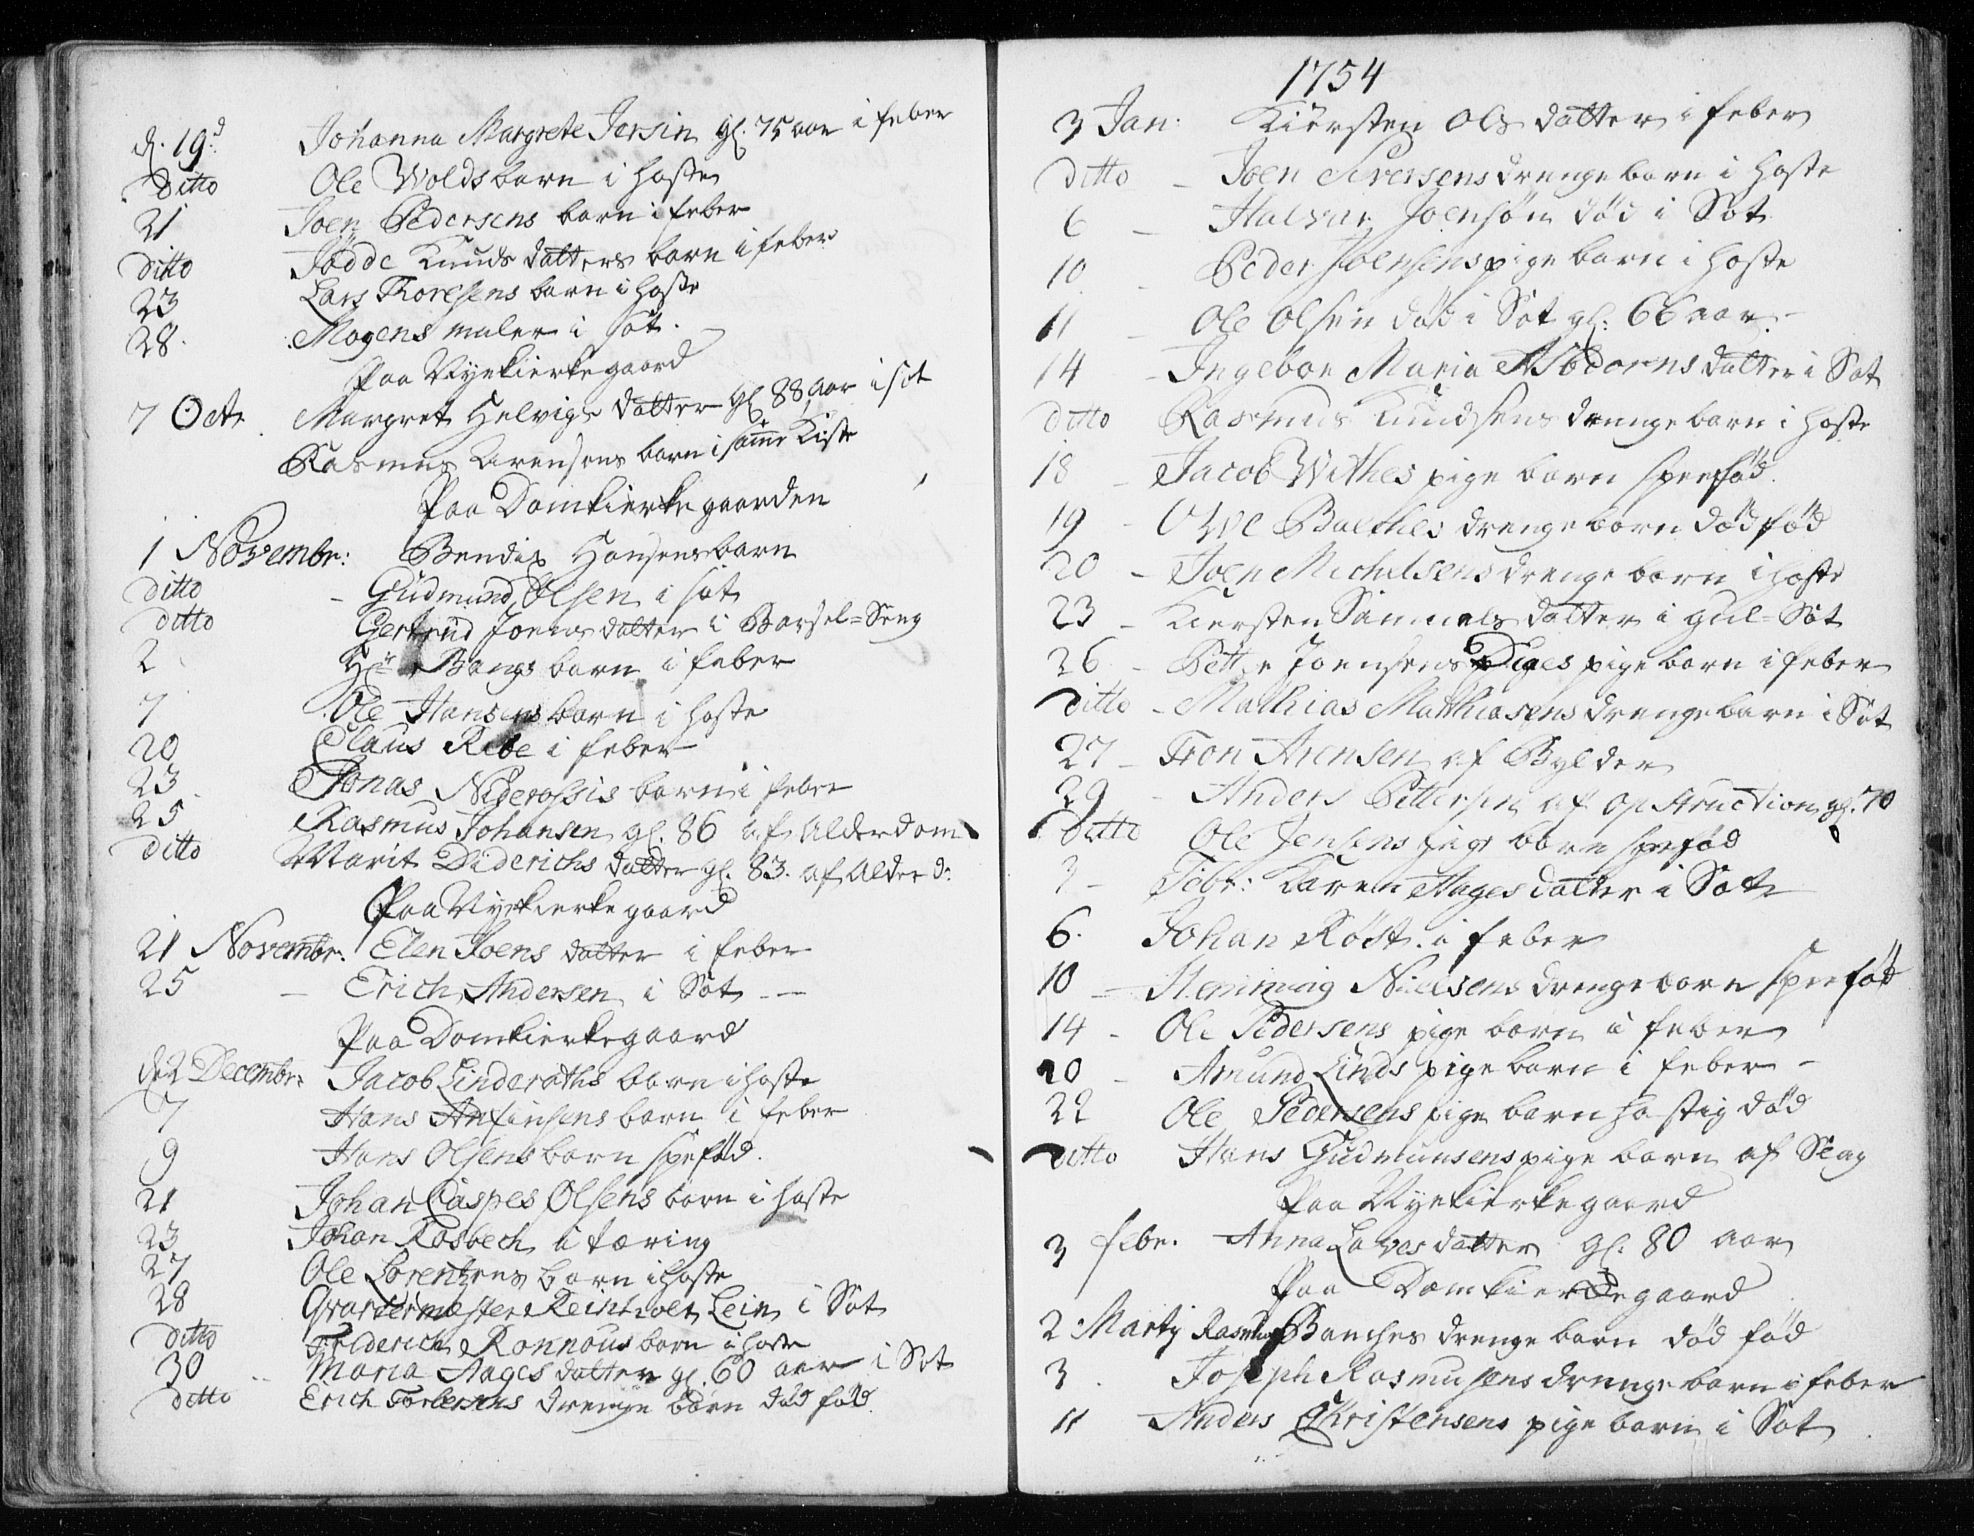 d. 19d Johanna Margrete Jersin gl. 75 aar i feber
Ditto Ole Wolds barn i hoste
21 Joen Pedersens barn i feber
Ditto Jødde Knuds datters barn i feber
23 Lars Thoresens barn i hoste
28. Mogens maler i Sot.
Paa Nyekierkegaard
7 Octr. Margret Helvigs datter gl. 88 aar i sot
Rasmus Arensens barn i samme Kiste
Paa Domkierkegaarden
1 Novembr: Bendix Hansens barn
ditto - Gudmund Olsen i sot
ditto Gertrud Joens datter i Barsel=Seng
2 Hr. Bangs barn i feber
7 Ole Hansens barn i hoste
20 Claus Ribe i feber
23 Jonas Niderossis barn i feber
25 Rasmus Johansen gl. 86 af Alderdom
ditto Marit Diderichs datter gl. 83. af Alder d:
Paa Nyekierkegaard
21 Novembr. Elen Joens datter i feber
25 - Erich Andersen i Sot
Paa Domkierkegaard
d. 2 Decembr: Jacob Linderaths barn i hoste
7 Hans Anfinsens barn i feber
9 Hans Olsens barn spæfød.
21 Johan Caspes Olsens barn i hoste
23 Johan Rosbech i tæring
27 Ole Lorentzens barn i hoste
28 Qvartermester Reinholt Lein i Sot
ditto Friderich Rønnous barn i hoste
30 Maria Aages datter gl. 60 aar i Sot
ditto Erich Torbersens drenge barn død fød.
1754
3 Jan: Kiersten Ols datter i feber
ditto - Joen Siversens drenge barn i hoste
6 - Halvar Joensøn død i Sot
10 - Peder Joensens pige barn i hoste
11 - Ole Olsen død i Sot gl: 66 aar
14 - Ingebor Maria Asbiørns datter i Sot
ditto Rasmus Knudsens drenge barn i hoste
18 - Jacob Withes pige barn spæfød.
19 - Ove Balches drenge barn død fød
20 - Joen Michelsens drenge barn i hoste
23 - Kiersten Samuels datter i gul=Sot
26 - Petter Joensens pige barn i feber
ditto - Mathias Mathiasens drenge barn i Sot
27 - Tron Arensen af Bylder
29 - Anders Pettersen af opstruction gl. 70
ditto Ole Jensens pige barn spæfød
3 - Febr: Karen Hages datter i Sot
6. Johan Røst i feber
10 - Hemming Nielsens drenge barn spæfød
14 - Ole Pedersens pige barn i feber
20 - Amund Linds pige barn i feber -
22 Ole Pedersens pige barn hastig død
ditto Hans Gudmunsens pige barn af Slag
Paa Nyekierkegaard
3 febr. Anna Lavesdatter gl. 80 aar
Paa Domkierkegaard
2 Martij Rasmus Banches drenge barn død fød
3. Joseph Rasmusens drenge barn i feber
11 - Anders Christensens pige barn i Sot